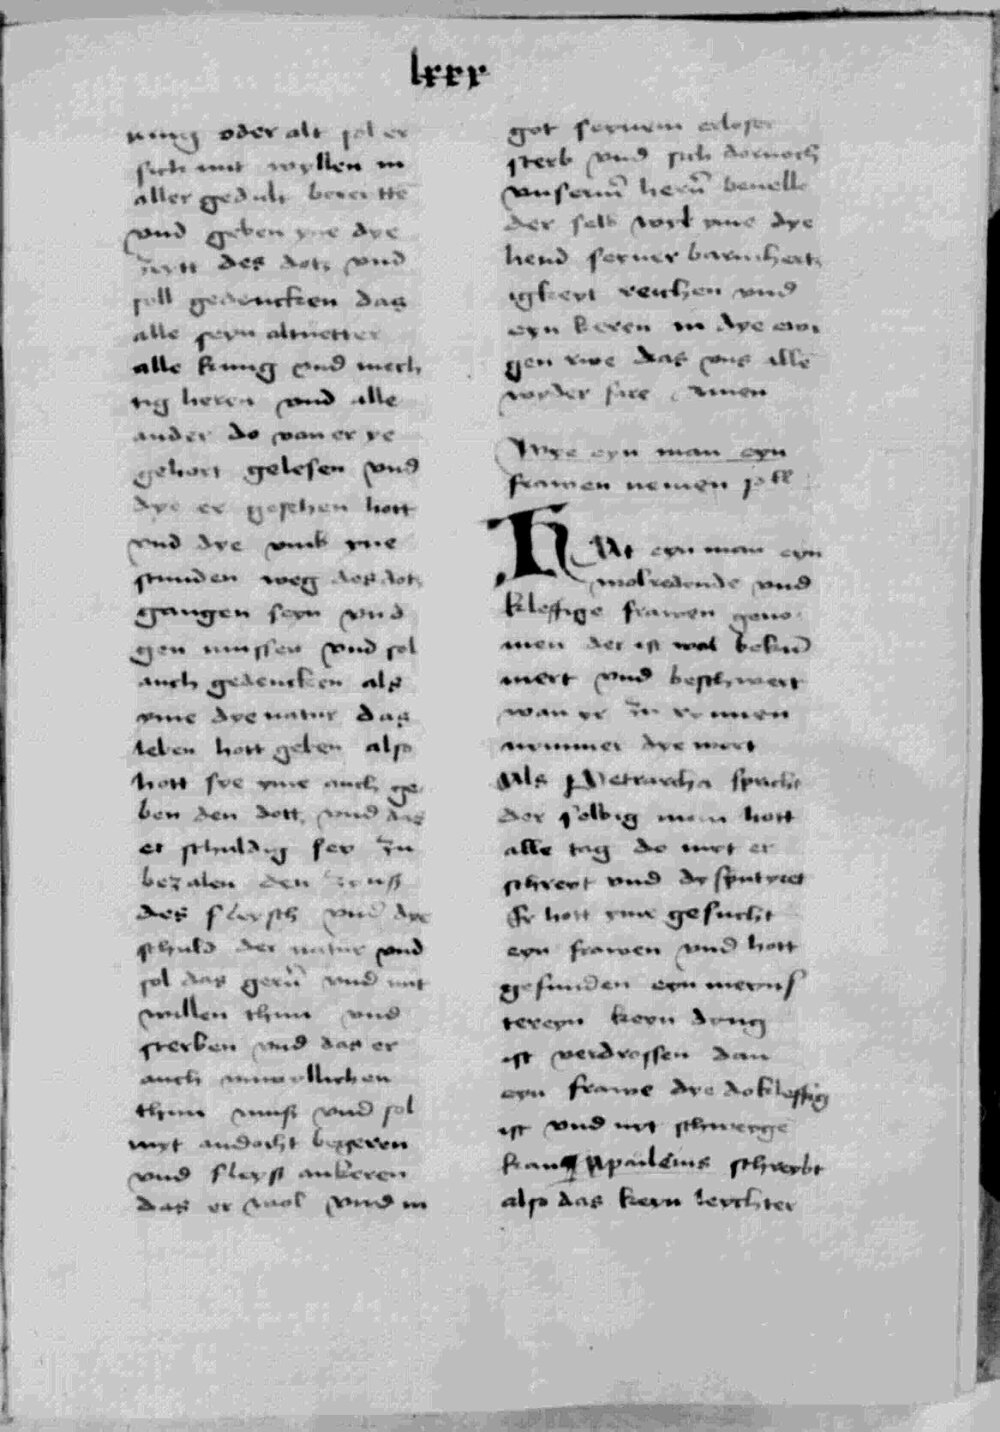 lxxx
iung oder alt sol er
sich mit wyllen in
aller gedult bereitte
vnd geben yne dye
zeytt des dotz vnd
soll gedencken das
alle seyn altuetter
alle kunig vnd mech
tig heren vnd alle
ander do von er ye
gehort gelesen vnd
dye er gesehen hott
vnd dye vmb yne
stunden weg des dotz
gangen seyn vnd
gen mussen vnd sol
auch gedencken als
yme dye natur das
leben hott geben also
hott sye yme auch ge
ben den dott vnd das
er schuldig sey zu
bezalen den zynß
des fleysch vnd dye
schuld der natur vnd
sol das gern vnd mit
willen thun vnd
sterben vnd das er
auch vnwyllichen
thun muß vnd sol
myt andacht begeren
vnd fleyß ankeren
das er wol vnd in
got seynem erloser
sterb vnd sich dornoch
vnserm hern beuelle
der selb wyl yme dye
hend seyner barmhertz
igkeyt reichen vnd
eyn keren in dye ewi
gen rwe das vns alle
wyder fare Amen
Wye eyn man eyn
frawen nemen soll
HAt eyn man eyn
wolredende vnd
kleffige frawen geno
men der ist wol bekü
mert vnd beschwert
wan er zu rymen
nymmer dye wert
Als Petrarcha spricht
der selbig man hott
alle tag do myt er
schreyt vnd dysputyret
Er hott yme gesucht
eyn frawen vnd hott
gefunden eyn meyns
tereyn keyn dyng
ist verdrossen dan
eyn frawe dye do kleffig
ist vnd nyt schweyge
kan Apuleius schreybt
also das keyn leychter